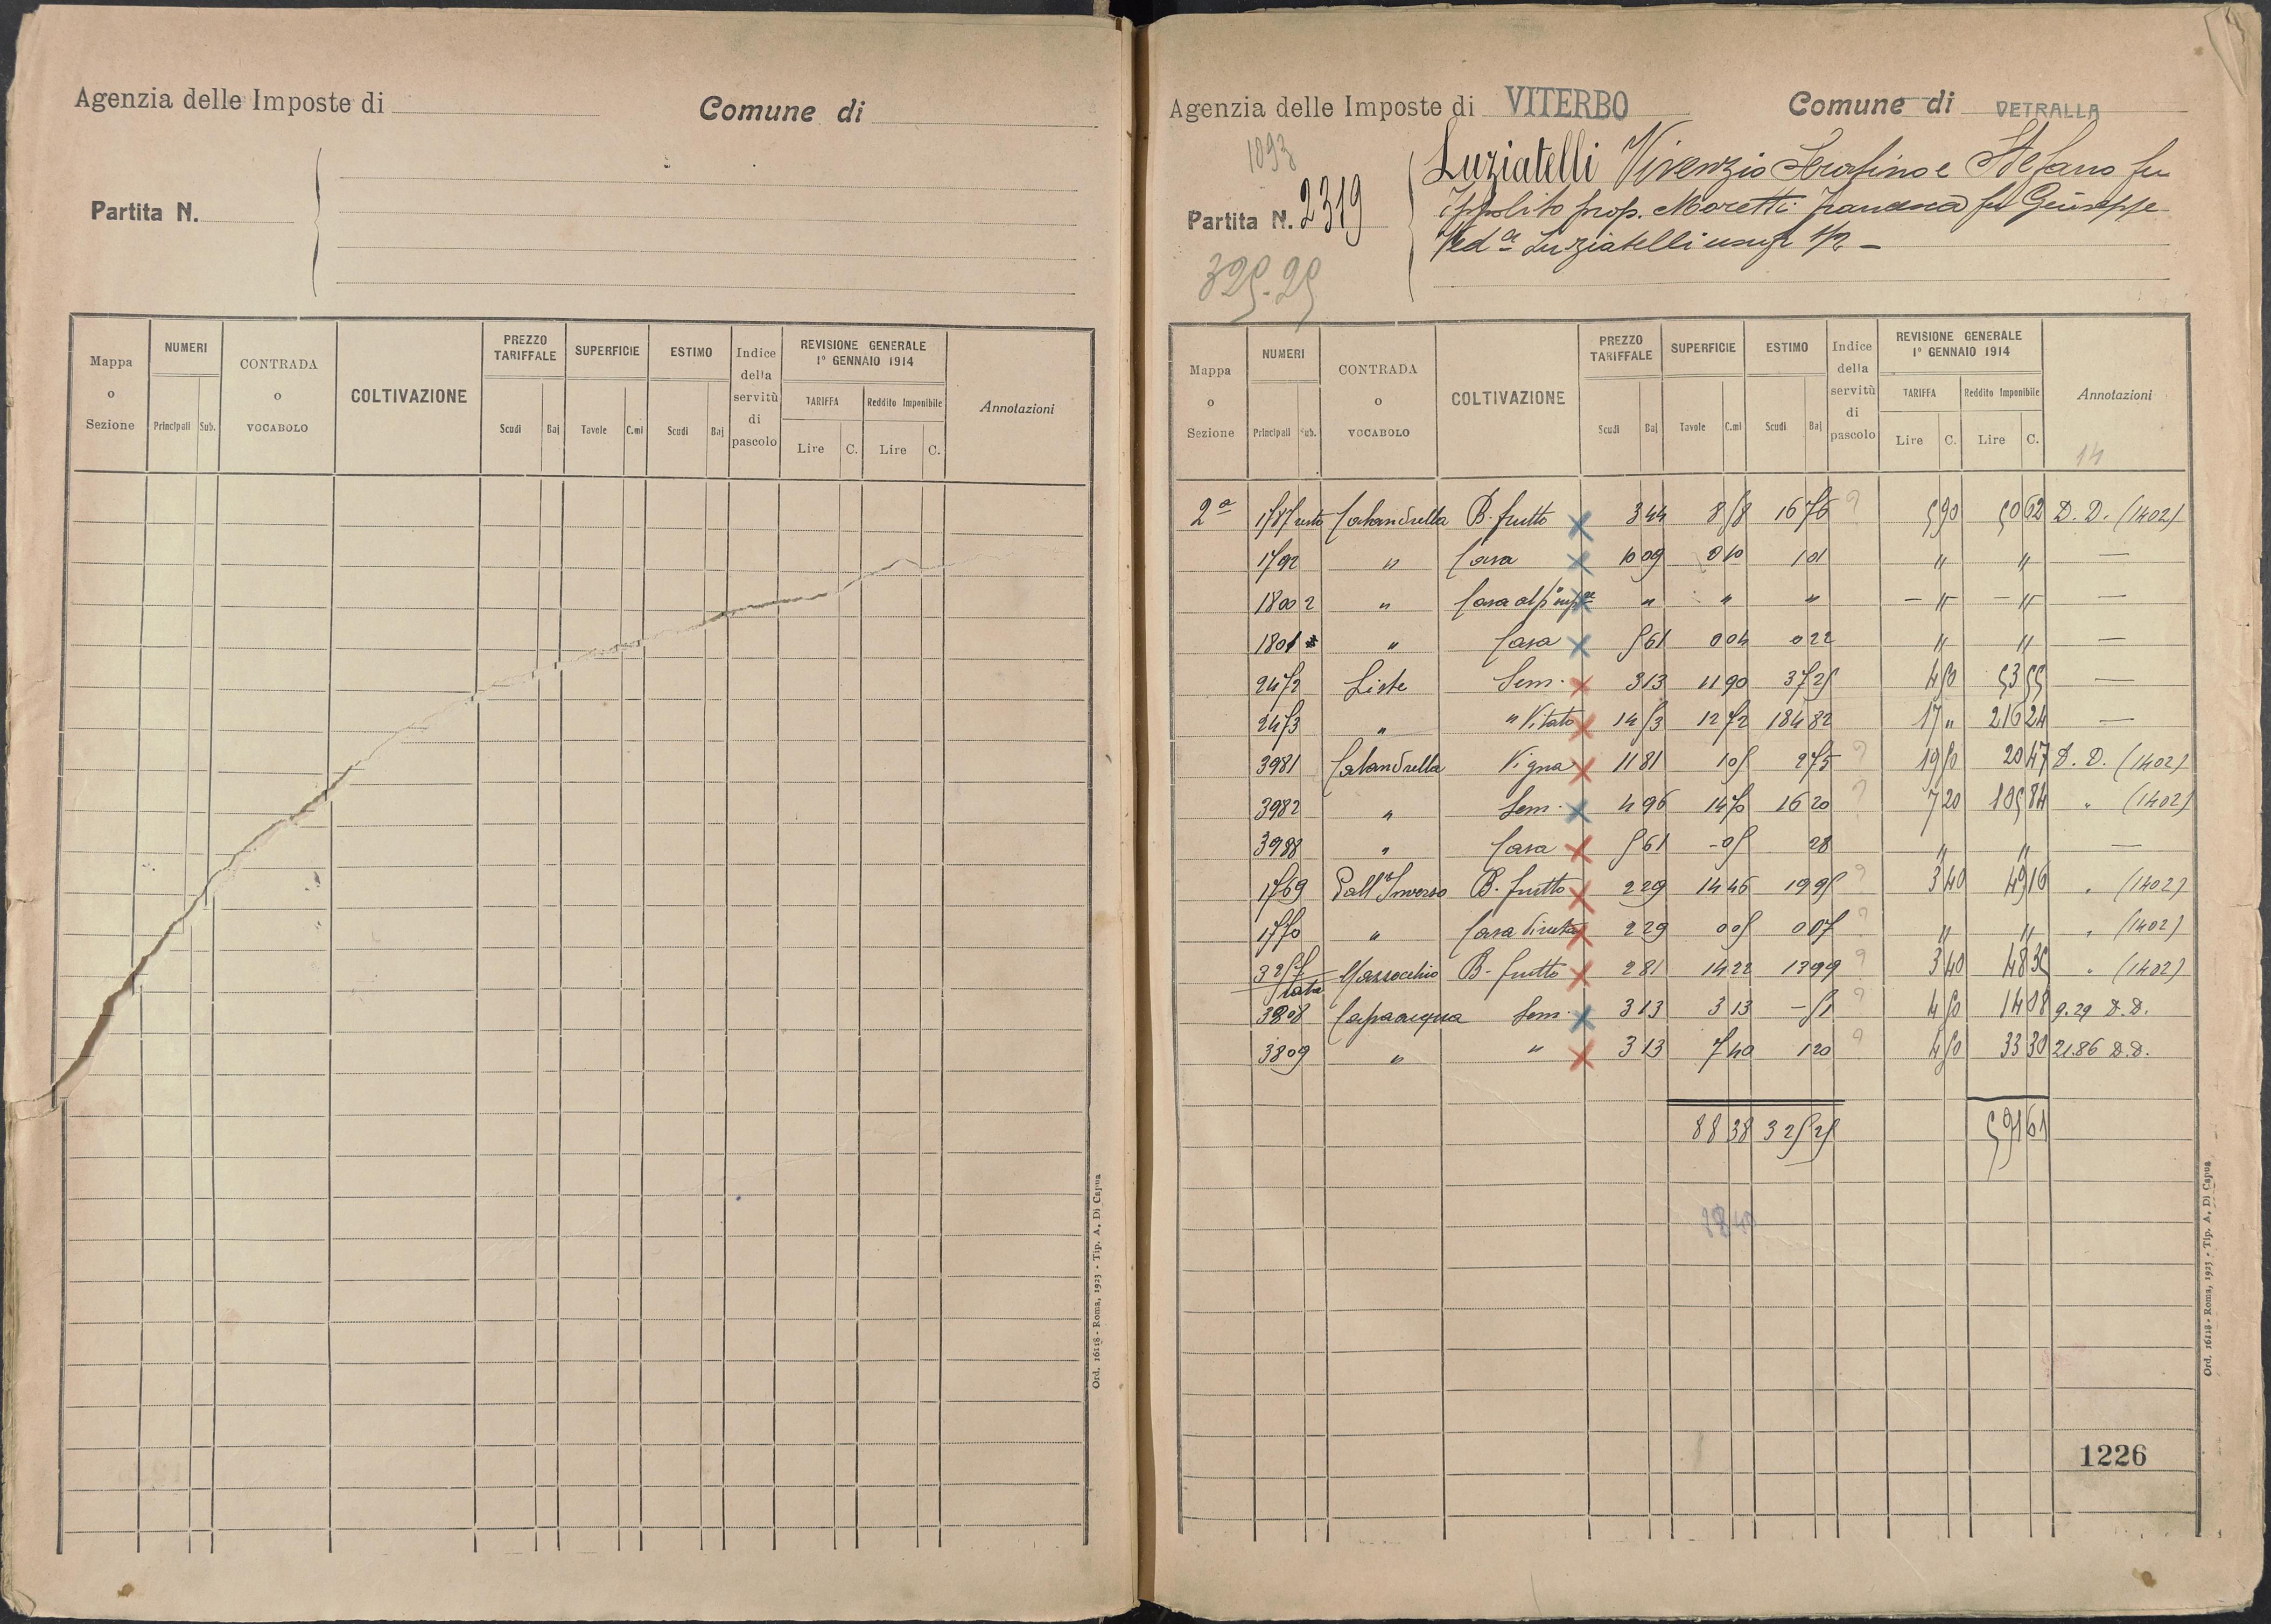 Agenzia delle Imposte di
Comune di
Partita N.
Mappa o Sezione
NUMERI
Principali Sub.
CONTRADA o VOCABOLO
COLTIVAZIONE
PREZZO TARIFFALE
Scudi Baj
SUPERFICIE
Tavole C.mi
ESTIMO
Scudi Baj
Indice della servitù di pascolo
REVISIONE GENERALE 1° GENNAIO 1914
TARIFFA
Lire C.
Reddito Imponibile
Lire C.
Annotazioni
Ord. 16118 - Roma, 1923 - Tip. A. Di Capua
Agenzia delle Imposte di VITERBO
Comune di VETRALLA
1093
Partita N. 2319
325.25
Luziatelli Vivenzio Serafino e Stefano fu
Ippolito prop. Moretti Francesca fu Giuseppe
Ved.a Luziatelli usuf 1/2 —
Mappa o Sezione
NUMERI
Principali Sub.
CONTRADA o VOCABOLO
COLTIVAZIONE
PREZZO TARIFFALE
Scudi Baj
SUPERFICIE
Tavole C.mi
ESTIMO
Scudi Baj
Indice della servitù di pascolo
REVISIONE GENERALE 1° GENNAIO 1914
TARIFFA
Lire C.
Reddito Imponibile
Lire C.
Annotazioni
14
2a 1787 resto Calandrella B. frutto x 3 44 8 58 16 76 ? 5 90 50 62 D. D. (1402)
1792 " Casa x 10 09 0 10 1 01 " " —
1800 2 " x " " " — " — " —
1801 " Casa x 5 61 0 04 0 22 " " —
2472 Liste Sem. x 3 13 11 90 37 25 4 50 53 55 —
2473 " " Vitato x 14 53 12 72 184 82 17 " 216 24 —
3981 Calandrella Vigna x 11 81 1 05 2 75 ? 19 50 20 47 D. D. (1402)
3982 " Sem. x 4 96 14 70 16 20 ? 7 20 105 84 " (1402)
3988 " Casa x 5 61 - 05 28 " " —
1769 Pall'Inverso B. frutto x 2 29 14 46 19 95 ? 3 40 49 16 " (1402)
1770 " Casa diruta x 2 29 0 05 0 07 ? " " " (1402)
3257 rata Mazzocchio B. frutto x 2 81 14 22 13 99 ? 3 40 48 35 " (1402)
3808 Capaacqua Sem. x 3 13 3 13 - 51 ? 4 50 14 08 9.29 D.D.
3809 " " x 3 13 7 40 1 20 ? 4 50 33 30 21.86 D.D.
88 38 325 25 591 61
1226
Ord. 16118 - Roma, 1923 - Tip. A. Di Capua